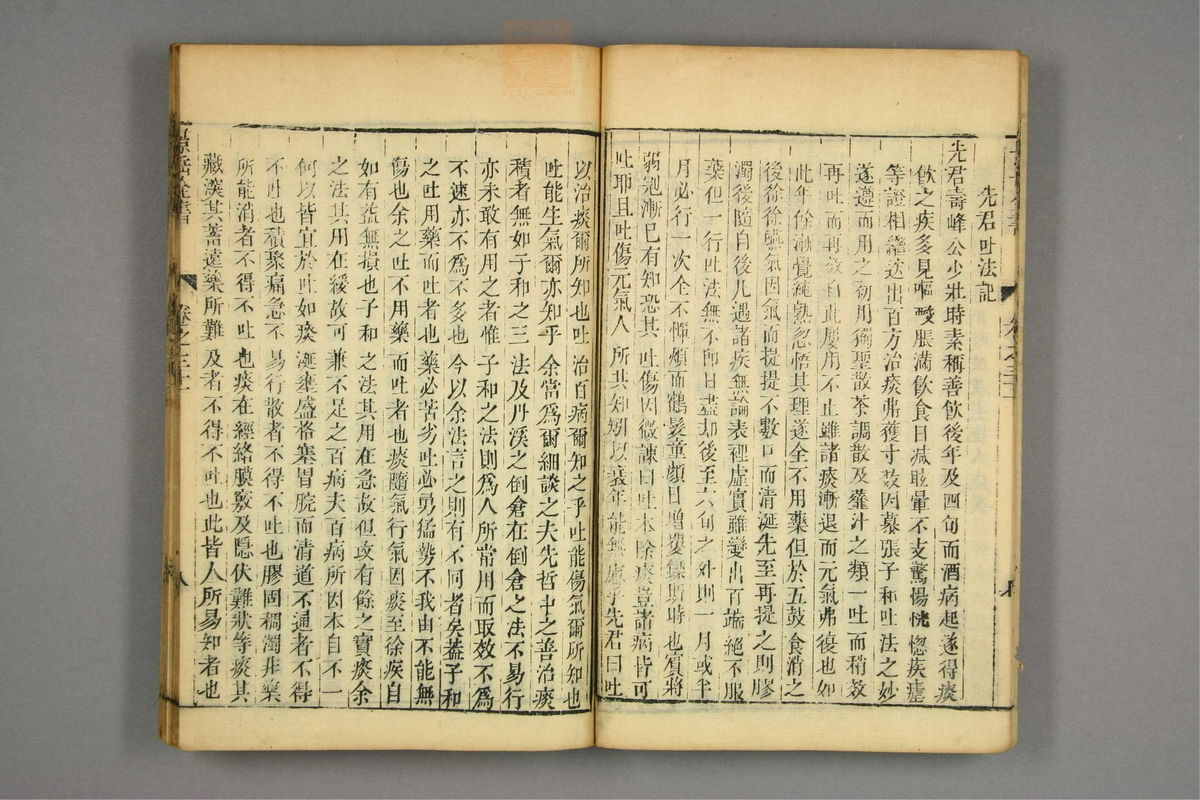 先君吐法記
先君壽峰公少壯時素稱善飲後年及四旬而酒病起遂得痰
飲之疾多見嘔酸脹滿飲食日減眩暈不支驚惕恍惚疾瘧
等證相繼迭出百方治痰弗獲寸效因慕張子和吐法之妙
遂遵而用之初用獨聖散茶調散及虀汁之類一吐而稍效
再吐而再效自此屢用不止雖諸痰漸退而元氣弗復也如
此年餘漸覺純熟忽悟其理遂全不用藥但於五鼓食消之
後徐徐嚥氣因氣而提提不數口而清涎先至再提之則膠
濁後隨自後凡遇諸疾無論表裡虛實雖變出百端絕不服
藥但一行吐法無不即日盡却後至六旬之外則一月或半
月必行一次全不憚煩而鶴髮童顏日增矍鑠斯時也賓將
弱冠漸已有知恐其吐傷因微諫曰吐本除痰豈諸病皆可
吐耶且吐傷元氣人所共知矧以衰年能無慮乎先君曰吐
以治痰爾所知也吐治百病爾知之乎吐能傷氣爾所知也
吐能生氣爾亦知乎余當爲爾細談之夫先哲中之善治痰
積者無如子和之三法及丹溪之倒倉在倒倉之法不易行
亦未敢有用之者惟子和之法則爲人所常用而取效不爲
不速亦不爲不多也今以余法言之則有不同者矣蓋子和
之吐用藥而吐者也藥必苦劣吐必勇猛勢不我由不能無
傷也余之吐不用藥而吐者也痰隨氣行氣因痰至徐疾自
如有益無損也子和之法其用在急故但攻有餘之實痰余
之法其用在緩故可兼不足之百病夫百病所因本自不一
何以皆宜於吐如痰涎壅盛格塞胃脘而清道不通者不得
不吐也積聚痛急不易行散者不得不吐也膠固稠濁非藥
所能消者不得不吐也痰在經絡膜竅及隱伏難狀等痰其
藏深其蓄遠藥所難及者不得不吐也此皆人所易知者也
景岳全書
卷之三十一
八